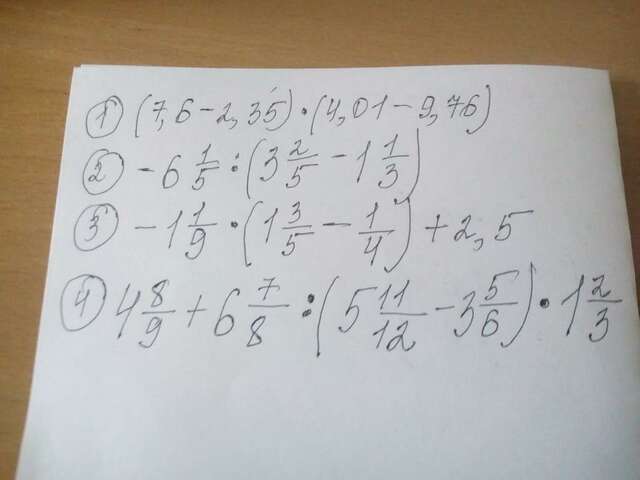 ① (7,6-2,35)·(4,01-9,76)
② -6 1/5 : (3 2/5 - 1 1/3)
③ -1 1/9 · (1 3/5 - 1/4) + 2,5
④ 4 8/9 + 6 7/8 : (5 11/12 - 3 5/6) · 1 2/3